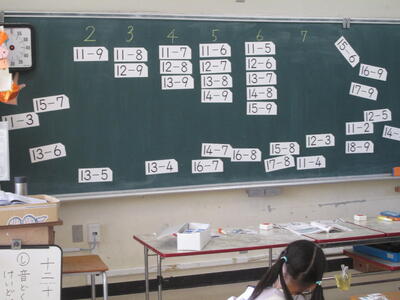 2 3 4 5 6 7
11-9 11-8 11-7 11-6 11-5
12-9 12-8 12-7 12-6
13-9 13-8 13-7
14-9 14-8
15-9
15-6
16-9
17-9
15-7
11-3
12-5
11-2
13-6
14-7
16-8
15-8
12-3
18-9
13-5
13-4
16-7
17-8
11-4
十二
音ど
けいど